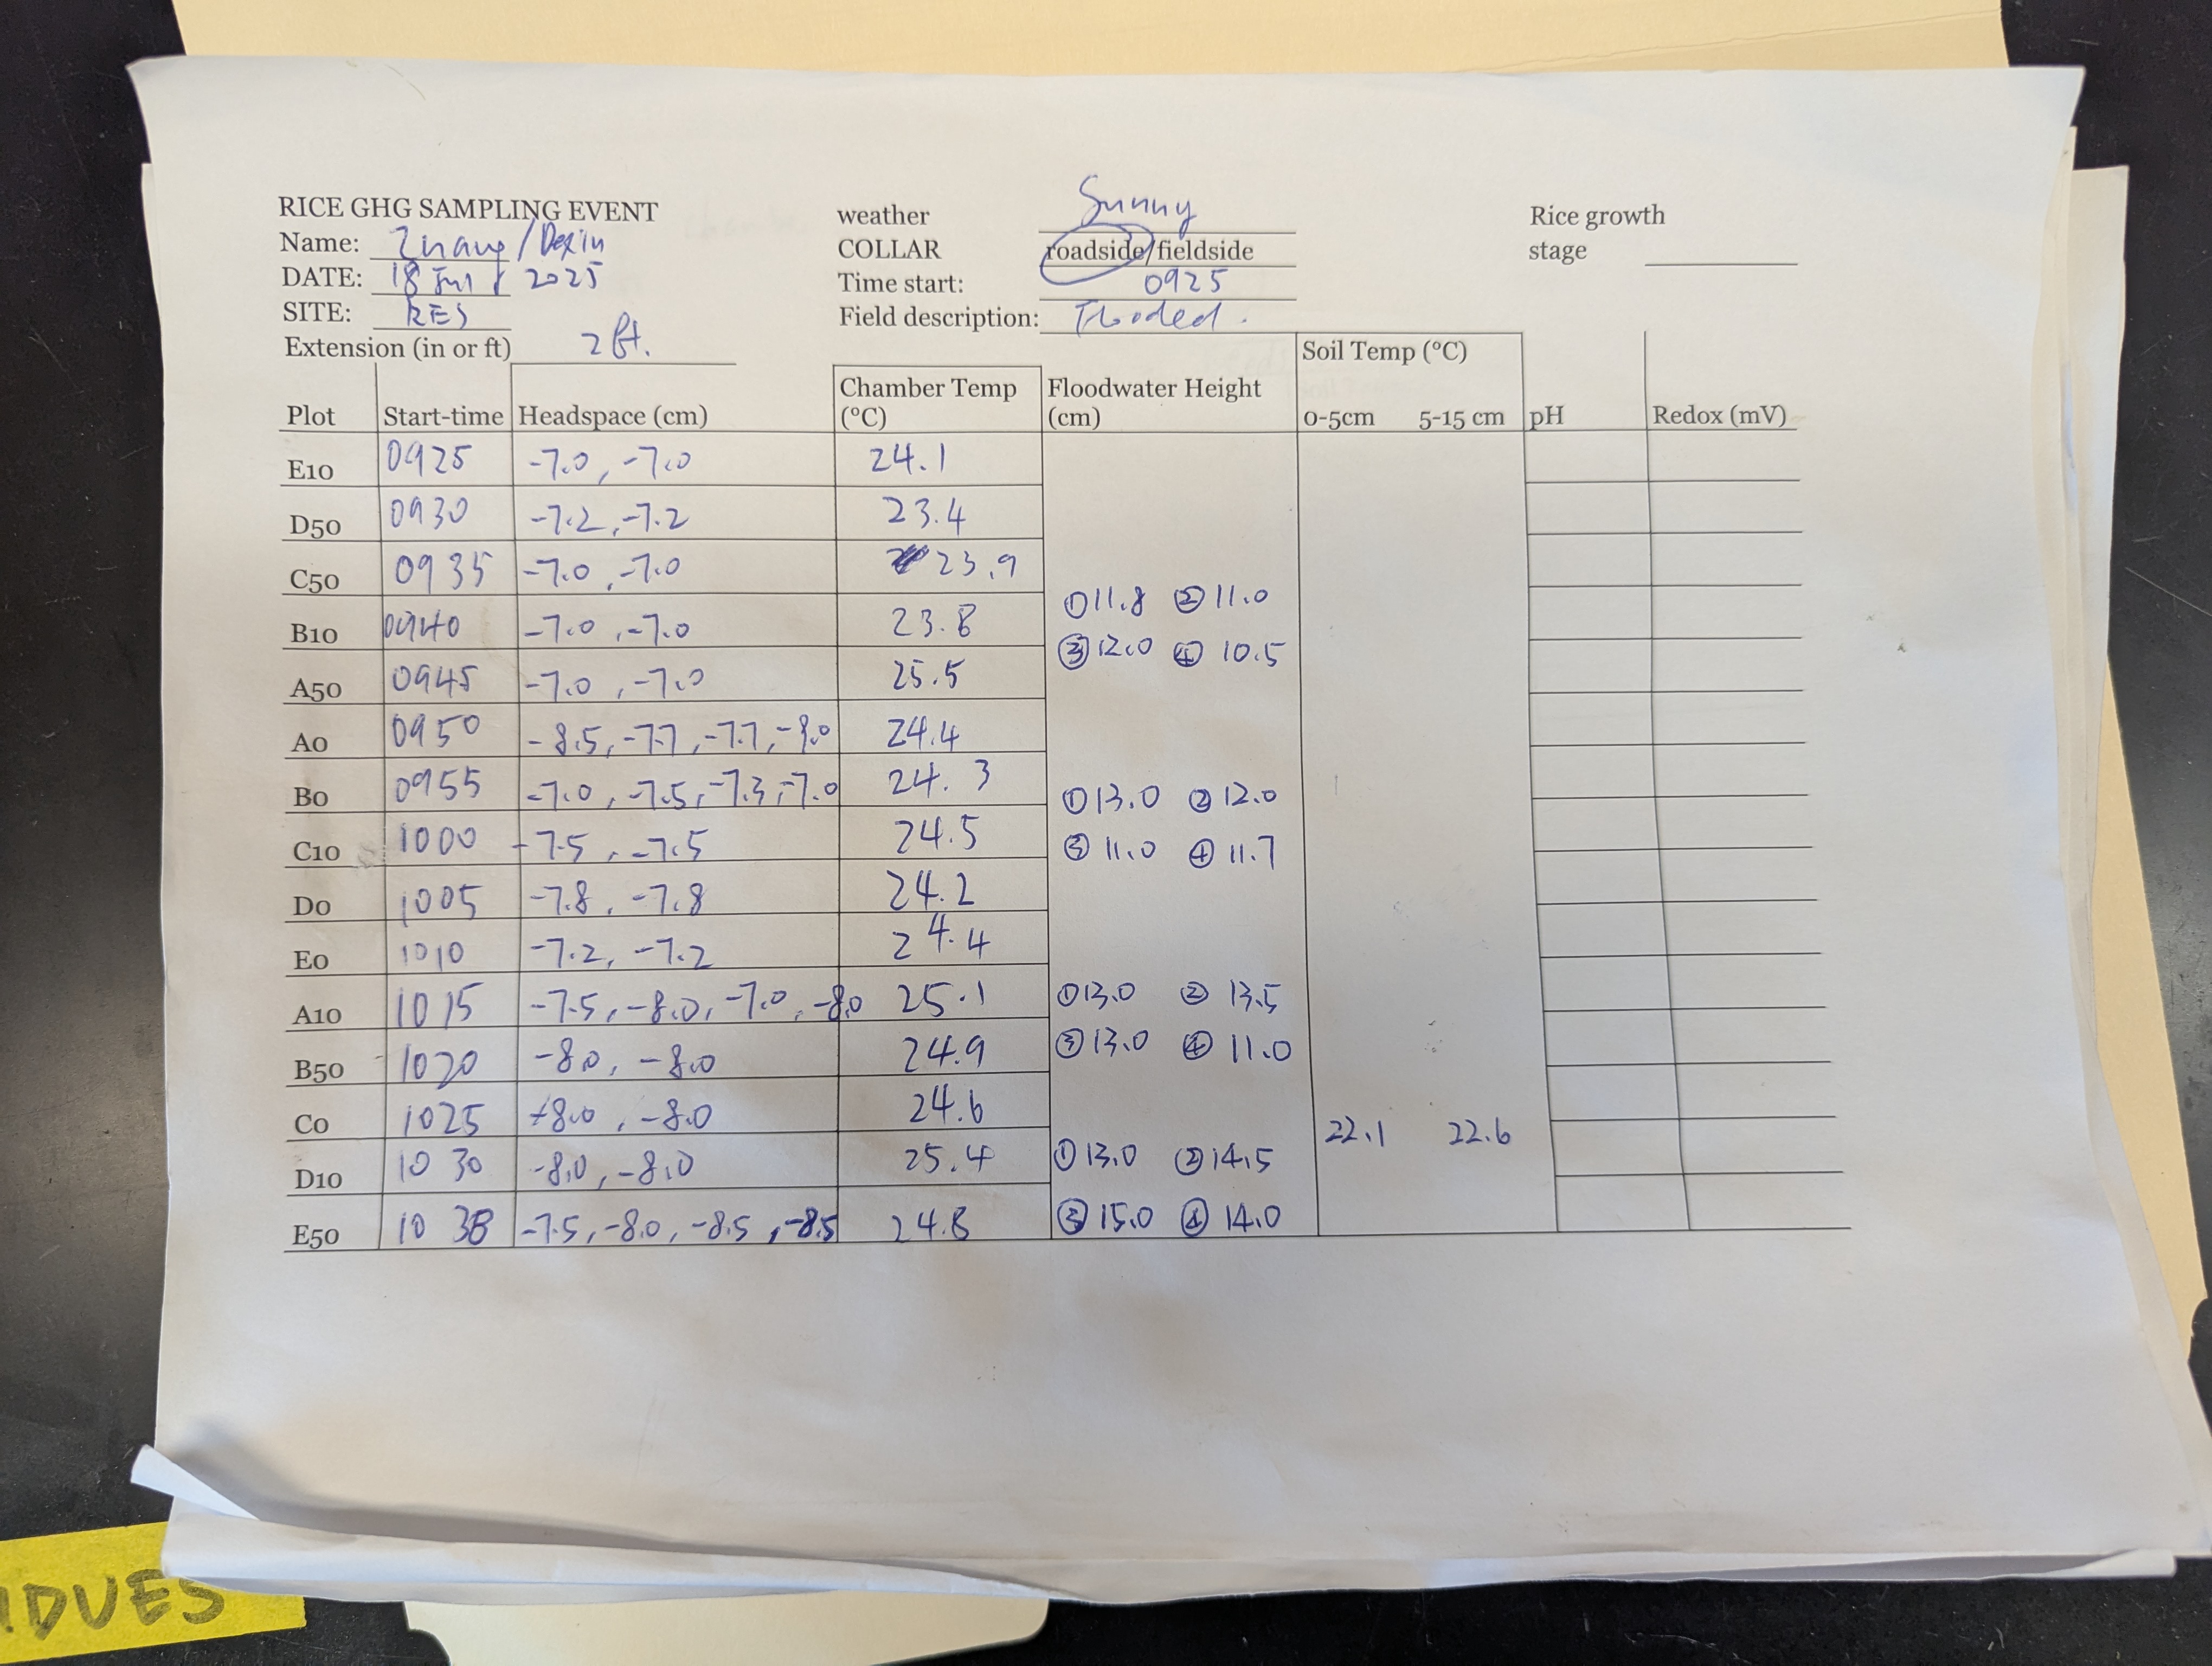 RICE GHG SAMPLING EVENT
Name: Zhang/Dexin
DATE: 18 Jul 2025
SITE: RES
Extension (in or ft) 2 ft.
weather Sunny
COLLAR roadside/fieldside
Time start: 0925
Field description: Flooded.
Rice growth
stage
Soil Temp (°C)
Plot Start-time Headspace (cm) Chamber Temp (°C) Floodwater Height (cm) 0-5cm 5-15 cm pH Redox (mV)
E10 0925 -7.0, -7.0 24.1
D50 0930 -7.2, -7.2 23.4
C50 0935 -7.0, -7.0 23.9
①11.8 ②11.0
B10 0940 -7.0, -7.0 23.8
③12.0 ④10.5
A50 0945 -7.0, -7.0 25.5
A0 0950 -8.5, -7.7, -7.7, -8.0 24.4
B0 0955 -7.0, -7.5, -7.3, -7.0 24.3 ①13.0 ②12.0
C10 1000 -7.5, -7.5 24.5 ③11.0 ④11.7
D0 1005 -7.8, -7.8 24.2
E0 1010 -7.2, -7.2 24.4
A10 1015 -7.5, -8.0, -7.0, -8.0 25.1 ①13.0 ②13.5
B50 1020 -8.0, -8.0 24.9 ③13.0 ④11.0
C0 1025 -8.0, -8.0 24.6 22.1 22.6
D10 1030 -8.0, -8.0 25.4 ①13.0 ②14.5
E50 -7.5, -8.0, -8.5, -8.5 24.8 ③15.0 ④14.0
IDUES